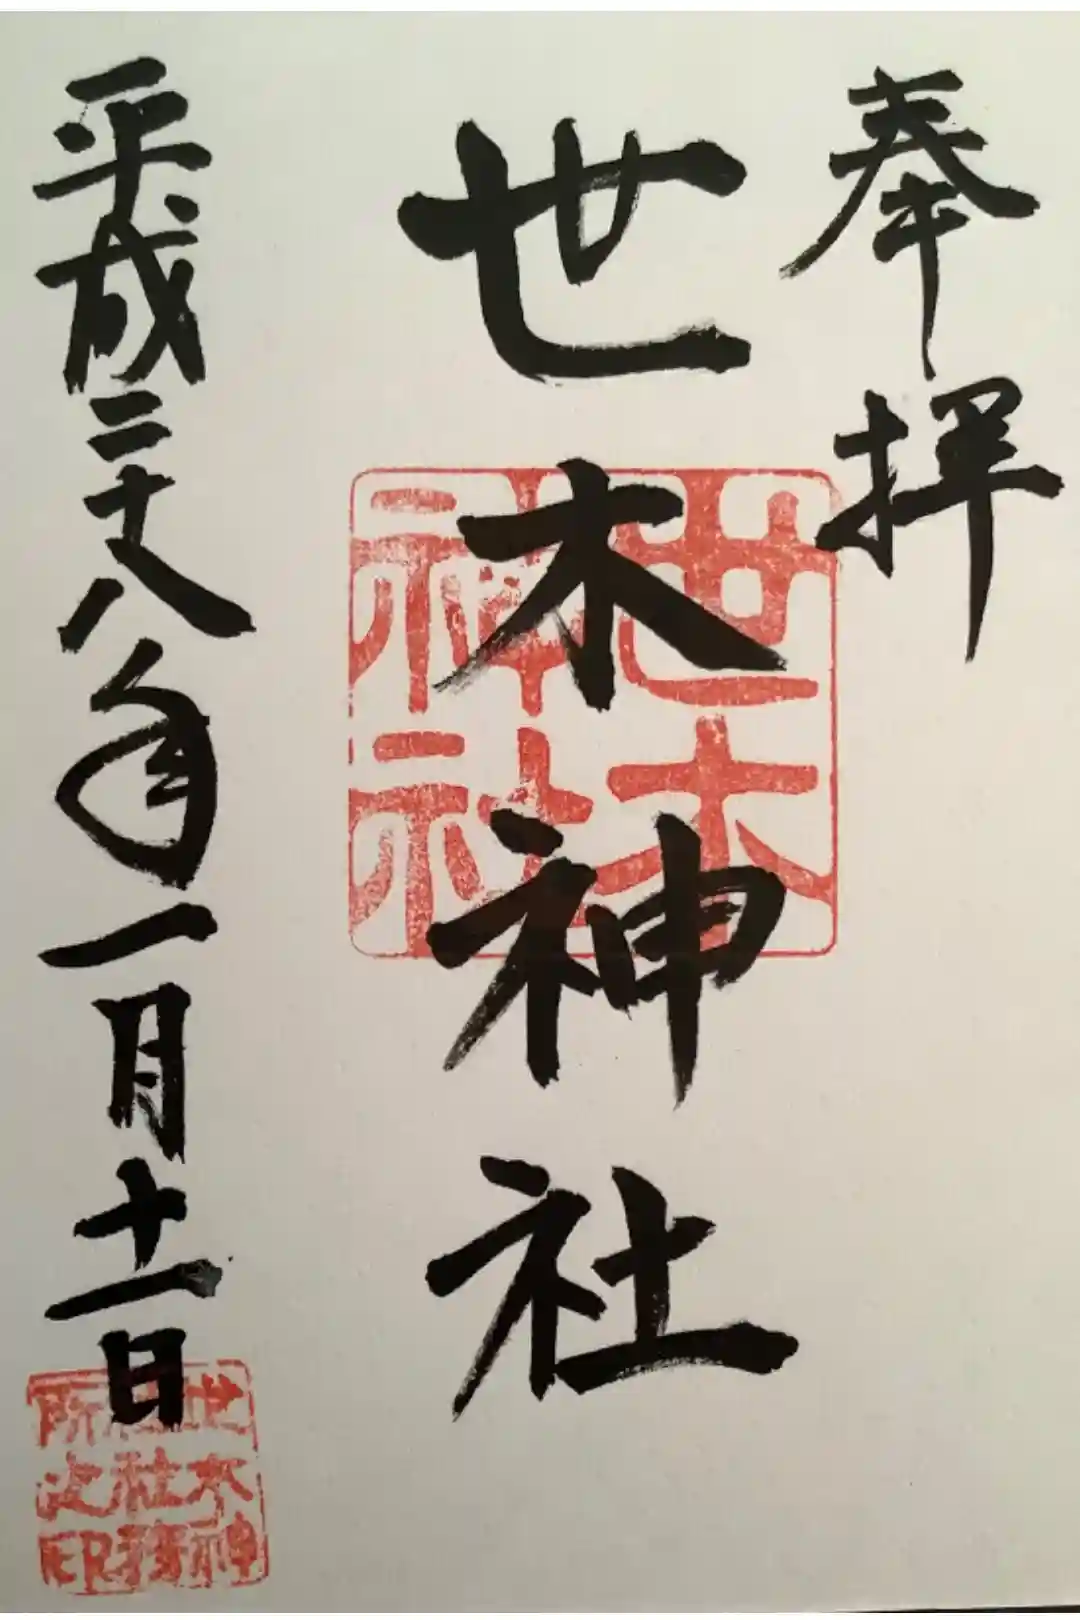 奉拝
世木神社
世木神社
平成二十八年一月十一日
世木神社社務所之印